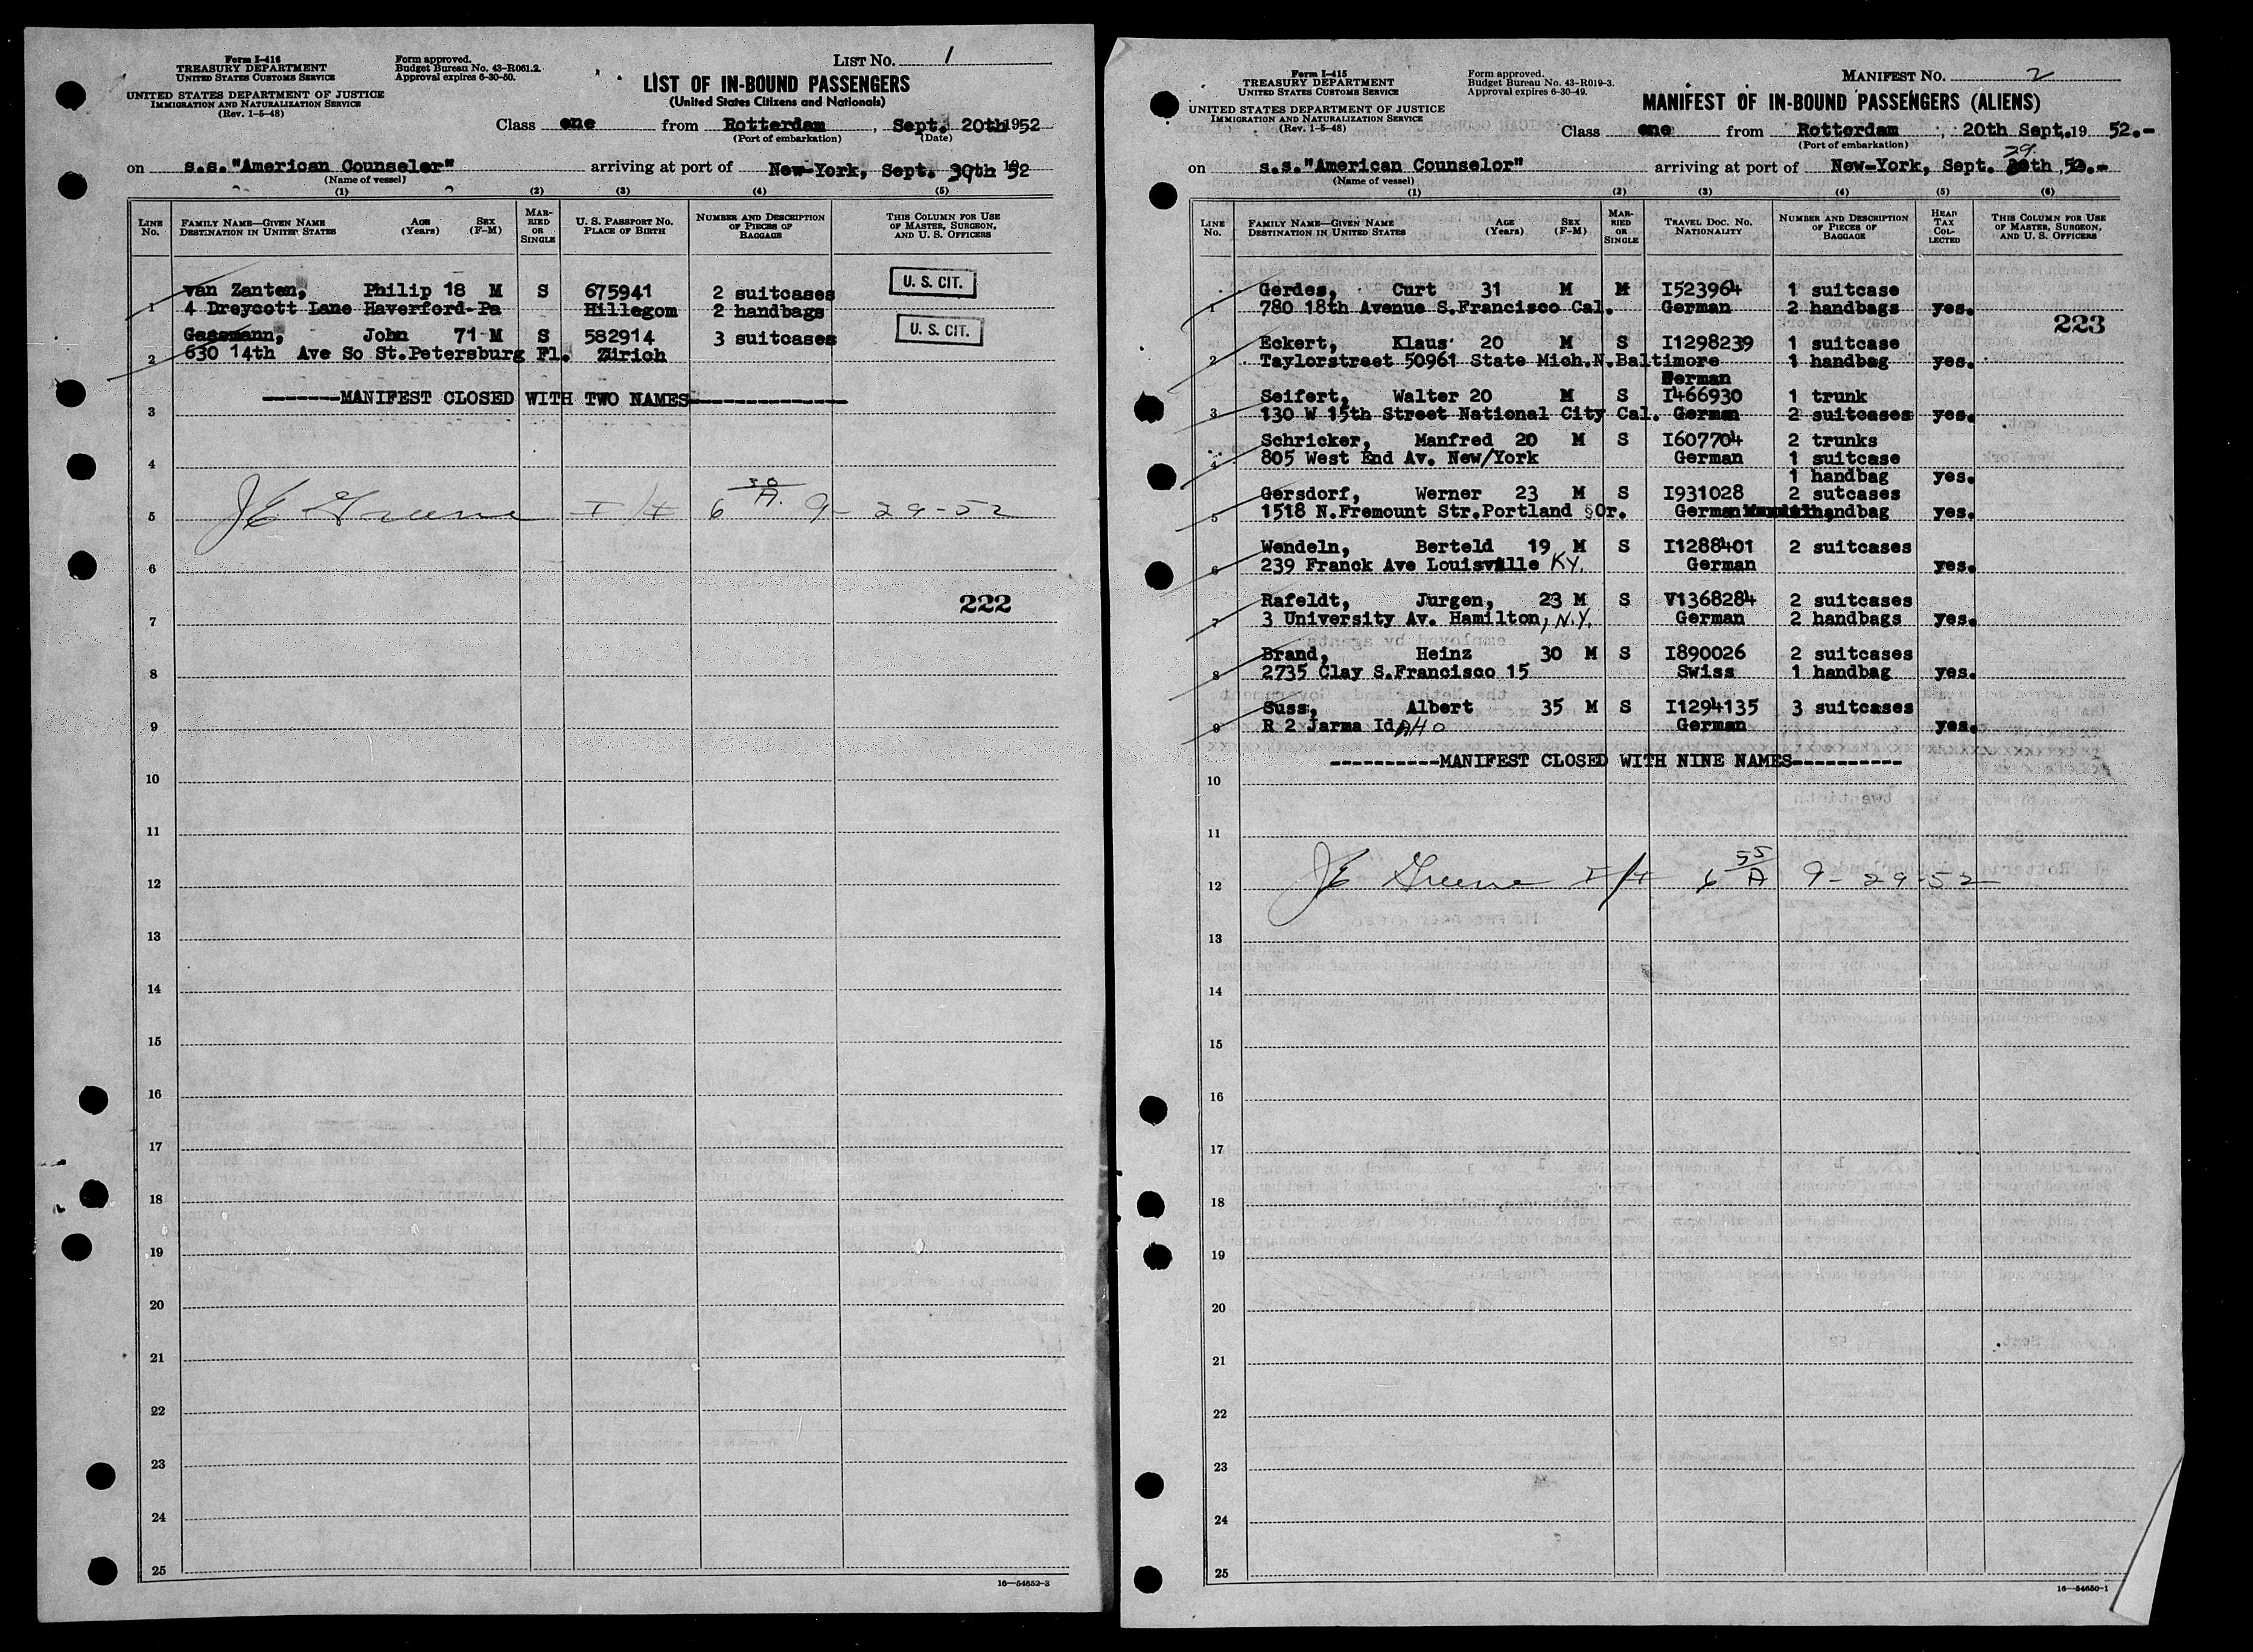 Form I-416
TREASURY DEPARTMENT
UNITED STATES CUSTOMS SERVICE
UNITED STATES DEPARTMENT OF JUSTICE
IMMIGRATION AND NATURALIZATION SERVICE
(Rev. 1-5-48)
Form approved.
Budget Bureau No. 43-R061.2.
Approval expires 6-30-50.
LIST NO. 1
LIST OF IN-BOUND PASSENGERS
(United States Citizens and Nationals)
Class one from Rotterdam, Sept. 20th 1952
(Port of embarkation) (Date)
on s.s."American Counselor" arriving at port of New-York, Sept. 30th 1952
(Name of vessel)
(1) (2) (3) (4) (5)
LINE NO.
FAMILY NAME—GIVEN NAME AGE (Years) SEX (F-M)
DESTINATION IN UNITED STATES
MARRIED OR SINGLE
U. S. PASSPORT NO.
PLACE OF BIRTH
NUMBER AND DESCRIPTION OF PIECES OF BAGGAGE
THIS COLUMN FOR USE OF MASTER, SURGEON, AND U. S. OFFICERS
van Zanten, Philip 18 M S 675941 2 suitcases U. S. CIT.
1 4 Dreycott Lane Haverford-Pa Hillegom 2 handbags
Gassmann, John 71 M S 582914 3 suitcases U. S. CIT.
2 630 14th Ave So St.Petersburg Fl. Zürich
-------MANIFEST CLOSED WITH TWO NAMES--------------
3
4
5 JE Greene I/I 6 30/A. 9-29-52
6
222
7
8
9
10
11
12
13
14
15
16
17
18
19
20
21
22
23
24
25
16—54652-3
Form I-415
TREASURY DEPARTMENT
UNITED STATES CUSTOMS SERVICE
UNITED STATES DEPARTMENT OF JUSTICE
IMMIGRATION AND NATURALIZATION SERVICE
(Rev. 1-5-48)
Form approved.
Budget Bureau No. 43-R019-3.
Approval expires 6-30-49.
MANIFEST NO. 2
MANIFEST OF IN-BOUND PASSENGERS (ALIENS)
Class one from Rotterdam, 20th Sept.19 52.-
(Port of embarkation)
29
on s.s."American Counselor" arriving at port of New-York, Sept. 30th, 52.-
(Name of vessel)
(1) (2) (3) (4) (5) (6)
LINE NO.
FAMILY NAME—GIVEN NAME AGE (Years) SEX (F-M)
DESTINATION IN UNITED STATES
MARRIED OR SINGLE
TRAVEL DOC. NO.
NATIONALITY
NUMBER AND DESCRIPTION OF PIECES OF BAGGAGE
HEAD TAX COLLECTED
THIS COLUMN FOR USE OF MASTER, SURGEON, AND U. S. OFFICERS
Gerdes, Curt 31 M M I523964 1 suitcase
1 780 18th Avenue S.Francisco Cal. German 2 handbags yes.
223
Eckert, Klaus 20 M S I1298239 1 suitcase
2 Taylorstreet 50961 State Mich.N.Baltimore 1 handbag yes.
German
Seifert, Walter 20 M S I466930 1 trunk
3 130 W 15th Street National City Cal. German 2 suitcases yes.
Schricker, Manfred 20 M S I607704 2 trunks
4 805 West End Av. New/York German 1 suitcase
1 handbag yes.
Gersdorf, Werner 23 M S I931028 2 sutcases
5 1518 N.Fremount Str.Portland §Or. German handbag yes.
Wendeln, Berteld 19 M S I1288401 2 suitcases
6 239 Franck Ave Louisville KY. German yes.
Rafeldt, Jurgen, 23 M S V1368284 2 suitcases
7 3 University Av. Hamilton, N.Y. German 2 handbags yes.
Brand, Heinz 30 M S I890026 2 suitcases
8 2735 Clay S.Francisco 15 Swiss 1 handbag yes.
Suss, Albert 35 M S I1294135 3 suitcases
9 R 2 Jarma IdAHO German yes.
----------MANIFEST CLOSED WITH NINE NAMES----------
10
11
12 JE Greene I/I 6 55/A 9-29-52
13
14
15
16
17
18
19
20
21
22
23
24
25
16—54650-1